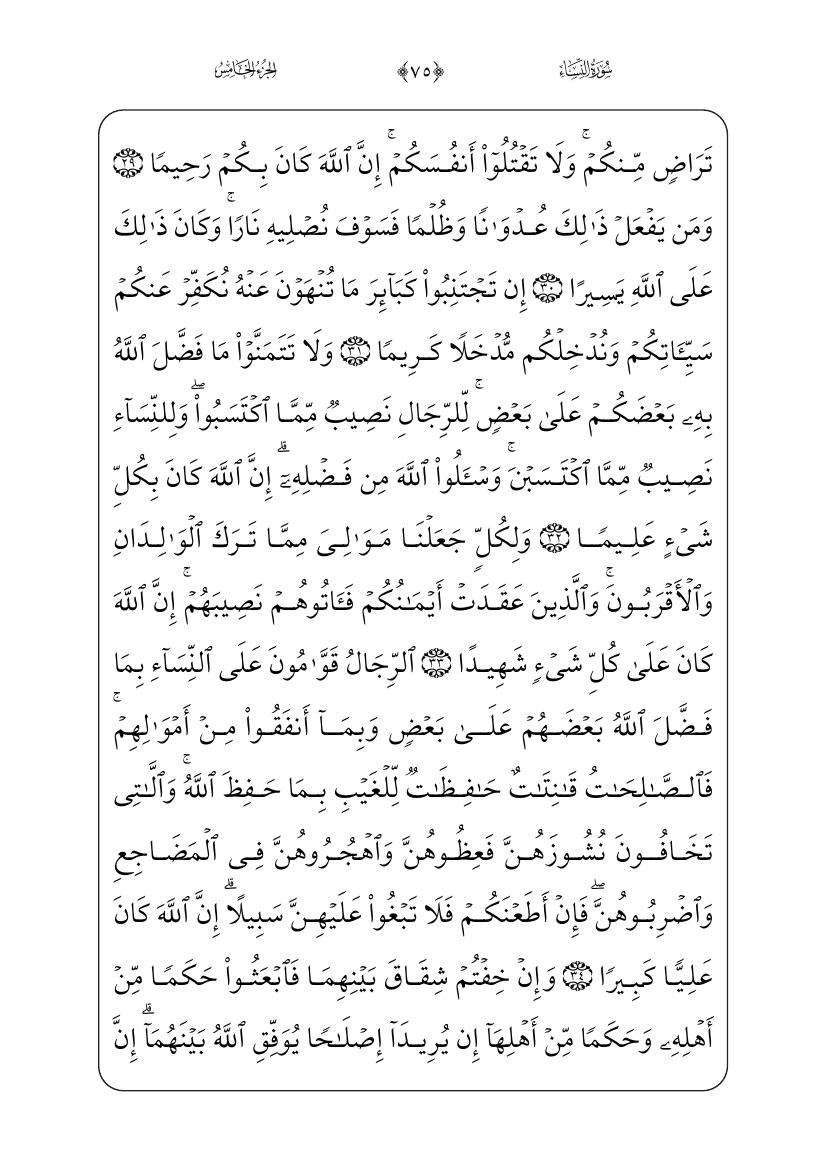 سُورَةُ النِّسَاءِ ﴿٧٥﴾ الجُزءُ الخَامِسُ
تَرَاضٖ مِّنكُمۡۚ وَلَا تَقۡتُلُوٓاْ أَنفُسَكُمۡۚ إِنَّ ٱللَّهَ كَانَ بِكُمۡ رَحِيمٗا ٢٩
وَمَن يَفۡعَلۡ ذَٰلِكَ عُدۡوَٰنٗا وَظُلۡمٗا فَسَوۡفَ نُصۡلِيهِ نَارٗاۚ وَكَانَ ذَٰلِكَ
عَلَى ٱللَّهِ يَسِيرًا ٣٠ إِن تَجۡتَنِبُواْ كَبَآئِرَ مَا تُنۡهَوۡنَ عَنۡهُ نُكَفِّرۡ عَنكُمۡ
سَيِّـَٔاتِكُمۡ وَنُدۡخِلۡكُم مُّدۡخَلٗا كَرِيمٗا ٣١ وَلَا تَتَمَنَّوۡاْ مَا فَضَّلَ ٱللَّهُ
بِهِۦ بَعۡضَكُمۡ عَلَىٰ بَعۡضٖۚ لِّلرِّجَالِ نَصِيبٞ مِّمَّا ٱكۡتَسَبُواْۖ وَلِلنِّسَآءِ
نَصِيبٞ مِّمَّا ٱكۡتَسَبۡنَۚ وَسۡـَٔلُواْ ٱللَّهَ مِن فَضۡلِهِۦٓۗ إِنَّ ٱللَّهَ كَانَ بِكُلِّ
شَيۡءٍ عَلِيمٗا ٣٢ وَلِكُلّٖ جَعَلۡنَا مَوَٰلِيَ مِمَّا تَرَكَ ٱلۡوَٰلِدَانِ
وَٱلۡأَقۡرَبُونَۚ وَٱلَّذِينَ عَقَدَتۡ أَيۡمَٰنُكُمۡ فَـَٔاتُوهُمۡ نَصِيبَهُمۡۚ إِنَّ ٱللَّهَ
كَانَ عَلَىٰ كُلِّ شَيۡءٖ شَهِيدًا ٣٣ ٱلرِّجَالُ قَوَّٰمُونَ عَلَى ٱلنِّسَآءِ بِمَا
فَضَّلَ ٱللَّهُ بَعۡضَهُمۡ عَلَىٰ بَعۡضٖ وَبِمَآ أَنفَقُواْ مِنۡ أَمۡوَٰلِهِمۡۚ
فَٱلصَّٰلِحَٰتُ قَٰنِتَٰتٌ حَٰفِظَٰتٞ لِّلۡغَيۡبِ بِمَا حَفِظَ ٱللَّهُۚ وَٱلَّٰتِي
تَخَافُونَ نُشُوزَهُنَّ فَعِظُوهُنَّ وَٱهۡجُرُوهُنَّ فِي ٱلۡمَضَاجِعِ
وَٱضۡرِبُوهُنَّۖ فَإِنۡ أَطَعۡنَكُمۡ فَلَا تَبۡغُواْ عَلَيۡهِنَّ سَبِيلًاۗ إِنَّ ٱللَّهَ كَانَ
عَلِيّٗا كَبِيرٗا ٣٤ وَإِنۡ خِفۡتُمۡ شِقَاقَ بَيۡنِهِمَا فَٱبۡعَثُواْ حَكَمٗا مِّنۡ
أَهۡلِهِۦ وَحَكَمٗا مِّنۡ أَهۡلِهَآ إِن يُرِيدَآ إِصۡلَٰحٗا يُوَفِّقِ ٱللَّهُ بَيۡنَهُمَآۗ إِنَّ